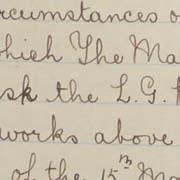 rcumstances o
which The Ma
sk the L.G.
works above
of the 15th Ma